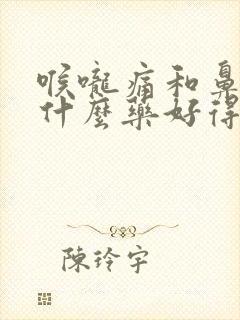 喉嚨痛和鼻
什麼藥好得
陳玲宇